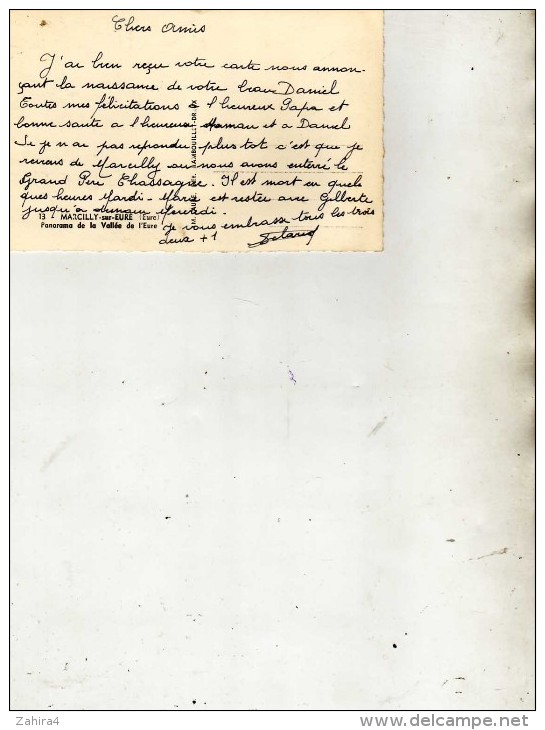 Chers Amis
J'ai bien reçu votre carte nous annon-
çant la naissance de votre brave Daniel
Toutes mes félicitations a l'heureux Papa et
bonne santé a l'heureuse Maman et a Daniel
Si je n'ai pas repondu plus tot c'est que je
reviens de Marcilly ou nous avons enterré le
Grand Père Chassagne. Il est mort en quel-
ques heures Mardi - Marie est restée avec Gilberte
jusqu'a Mercredi.
Je vous embrasse tous les trois
deux + 1
13 - MARCILLY-sur-EURE (Eure)
Panorama de la Vallée de l'Eure
RAMBOUILLET
Zahira4
www.delcampe.net